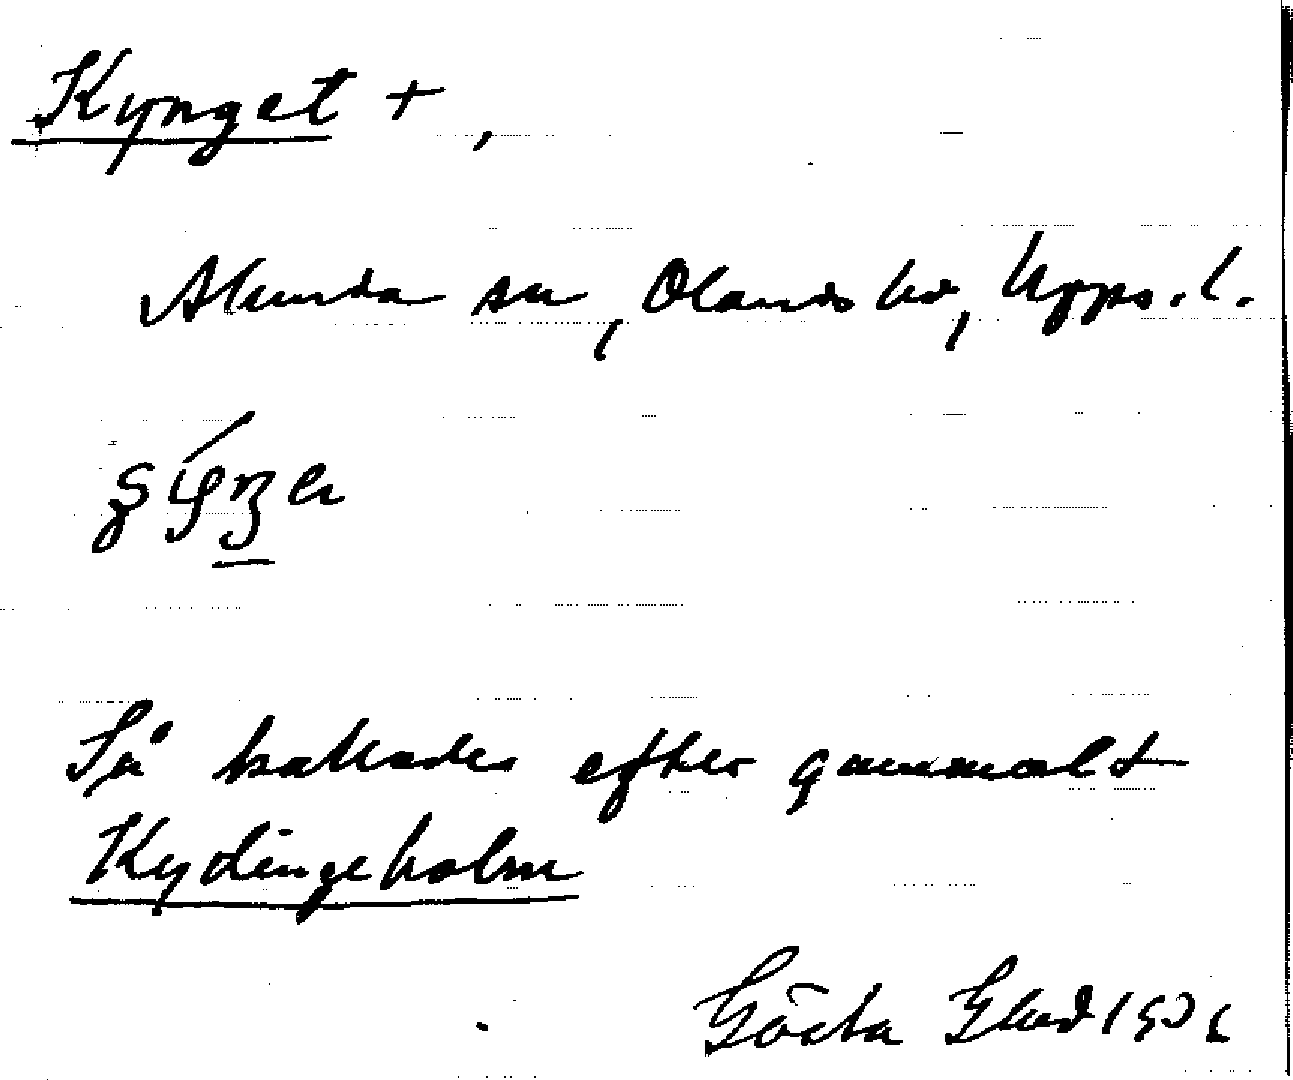 Kynget +,
Alunda sn, Olands hd, Upps. l.
Så kallades efter gammalt
Kydingeholm
Gösta Elad